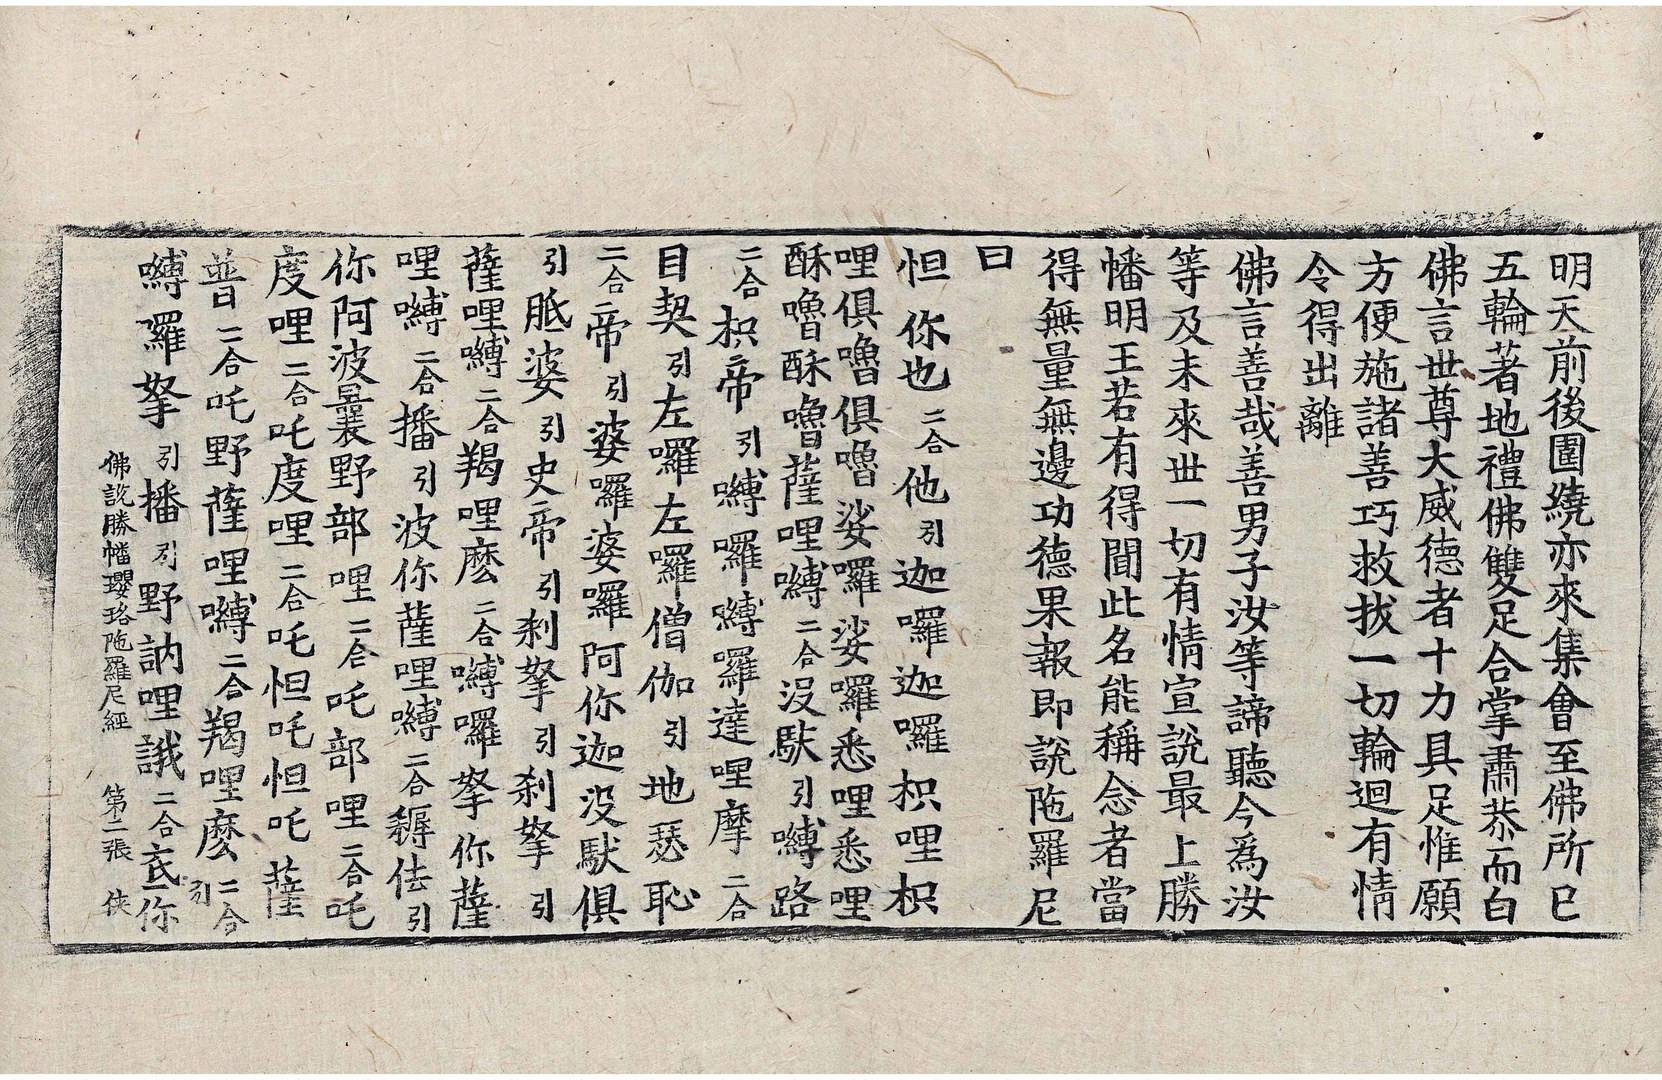 明天前後圍繞亦來集會至佛所已
五輪著地禮佛雙足合掌肅恭而白
佛言世尊大威德者十力具足惟願
方便施諸善巧救拔一切輪迴有情
令得出離
佛言善哉善男子汝等諦聽今為汝
等及未來世一切有情宣說最上勝
幡明王若有得聞此名能稱念者當
得無量無邊功德果報即說陁羅尼
曰
怛你也二合他引迦囉迦囉枳哩枳
哩俱嚕俱嚕娑囉娑囉悉哩悉哩
酥嚕酥嚕薩哩嚩二合沒馱引嚩路
二合枳帝引嚩囉嚩囉達哩摩二合
目契引左囉左囉僧伽引地瑟恥
二合帝引婆囉婆囉阿你迦沒馱俱
引胝婆引史帝引剎拏引剎拏引
薩哩嚩二合羯哩麽二合嚩囉拏你薩
哩嚩二合播引波你薩哩嚩二合耨佉引
你阿波曩野部哩二合吒部哩二合吒
度哩二合吒度哩二合吒怛吒怛吒薩
普二合吒野薩哩嚩二合羯哩麽二合引
嚩羅拏引播引野訥哩誐二合底你
佛說勝幡瓔珞陁羅尼經 第二張 俠